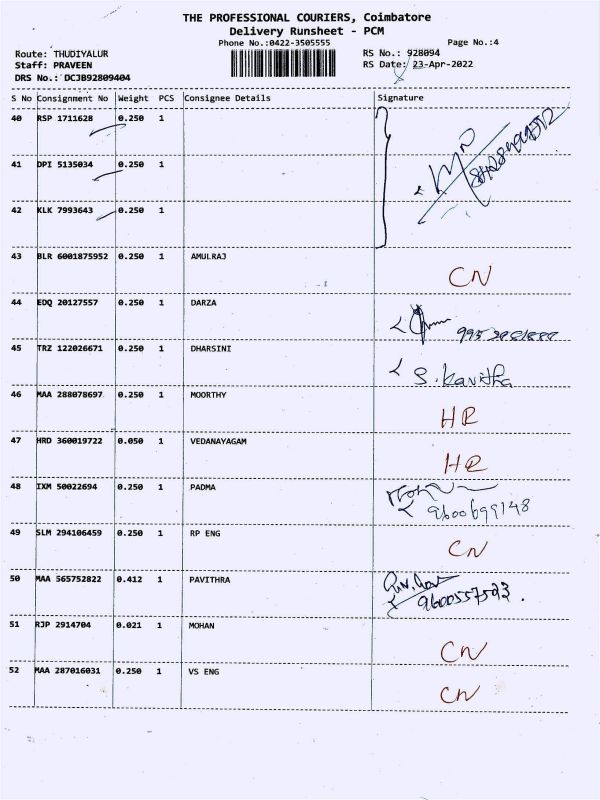 THE PROFESSIONAL COURIERS, Coimbatore
Delivery Runsheet - PCM
Phone No.:0422-3505555
Page No.:4
Route: THUDIYALUR
RS No.: 928094
Staff: PRAVEEN
RS Date: 23-Apr-2022
DRS No.: DCJB92809404
S No Consignment No Weight PCS Consignee Details Signature
40 RSP 1711628 0.250 1
41 DPI 5135034 0.250 1
42 KLK 7993643 0.250 1
43 BLR 6001875952 0.250 1 AMULRAJ CN
44 EDQ 20127557 0.250 1 DARZA
45 TRZ 122026671 0.250 1 DHARSINI S. Kavitha
46 MAA 288078697 0.250 1 MOORTHY HR
47 HRD 360019722 0.050 1 VEDANAYAGAM HR
48 IXM 50022694 0.250 1 PADMA
9600699148
49 SLM 294106459 0.250 1 RP ENG CN
50 MAA 565752822 0.412 1 PAVITHRA
51 RJP 2914704 0.021 1 MOHAN CN
52 MAA 287016031 0.250 1 VS ENG CN